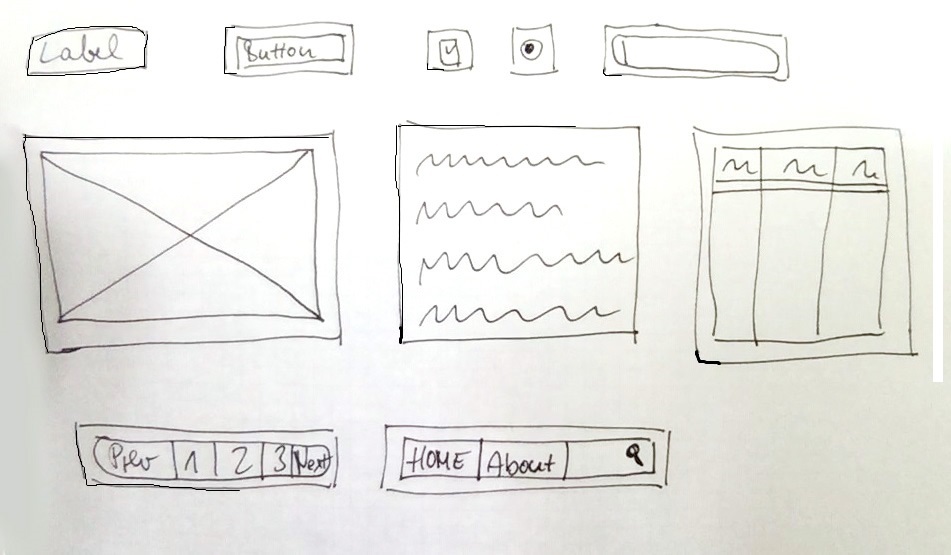 Label Button
Prev 1 2 3 Next HOME About